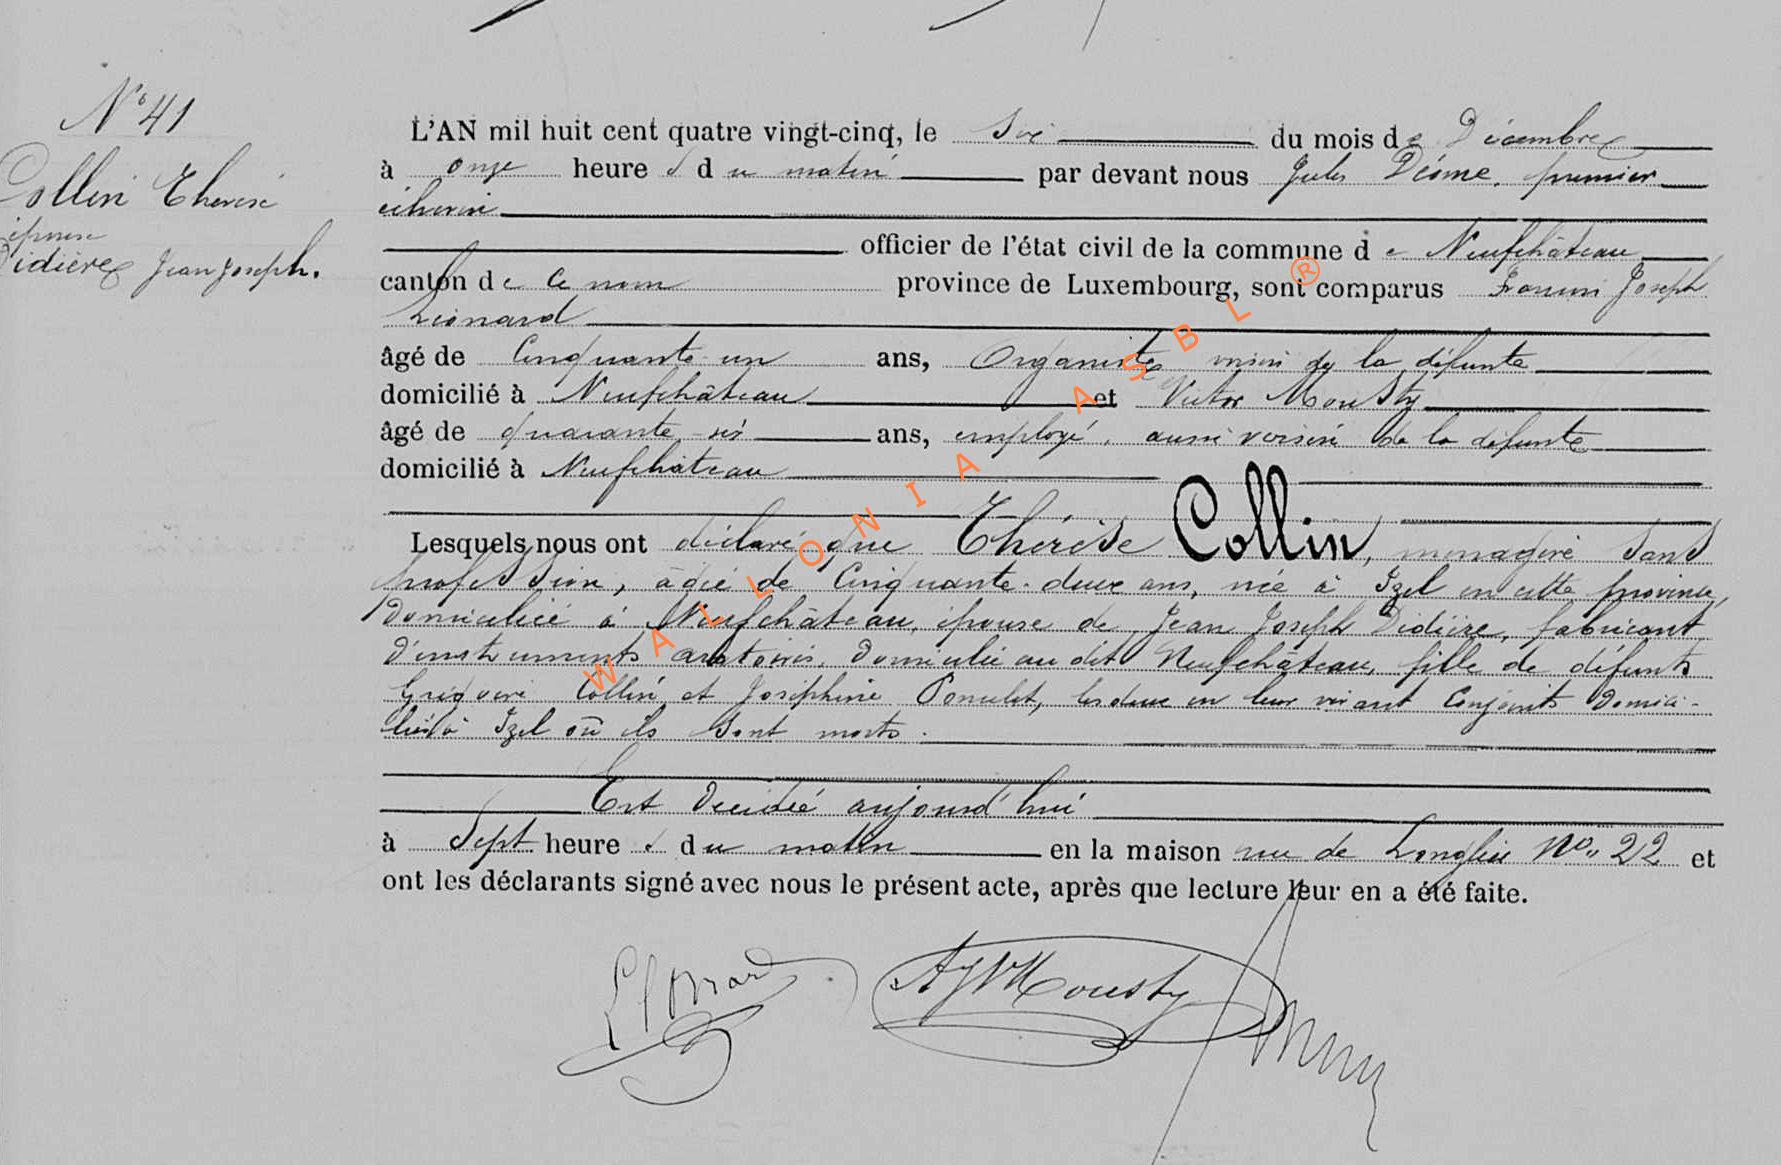 N° 41
Collin Thérèse
épouse
Didière Jean Joseph.
L'AN mil huit cent quatre vingt-cinq, le Six du mois de Décembre
à onze heures du matin par devant nous Jules Déome, premier
échevin
officier de l'état civil de la commune de Neufchâteau
canton de ce nom province de Luxembourg, sont comparus Francois Joseph
Léonard
âgé de Cinquante-un ans, Organiste voisin de la défunte
domicilié à Neufchâteau et Victor Mousty
âgé de quarante-six ans, employé, aussi voisin de la défunte
domicilié à Neufchâteau
Lesquels nous ont déclaré que Thérèse Collin, ménagère sans
profession, âgée de Cinquante-deux ans, née à Izel en cette province,
domiciliée à Neufchâteau, épouse de Jean Joseph Didière, fabricant
d'instruments aratoires, domicilié au dit Neufchâteau, fille de défunts
Grégoire Collin et Joséphine Poncelet, les deux en leur vivant Conjoints domici-
liés à Izel où ils sont morts.
Est décédée aujourd'hui
à Sept heures du matin en la maison rue de Longlier No 22 et
ont les déclarants signé avec nous le présent acte, après que lecture leur en a été faite.
Léonard
AJVMousty
WALLONIA ASBL ®